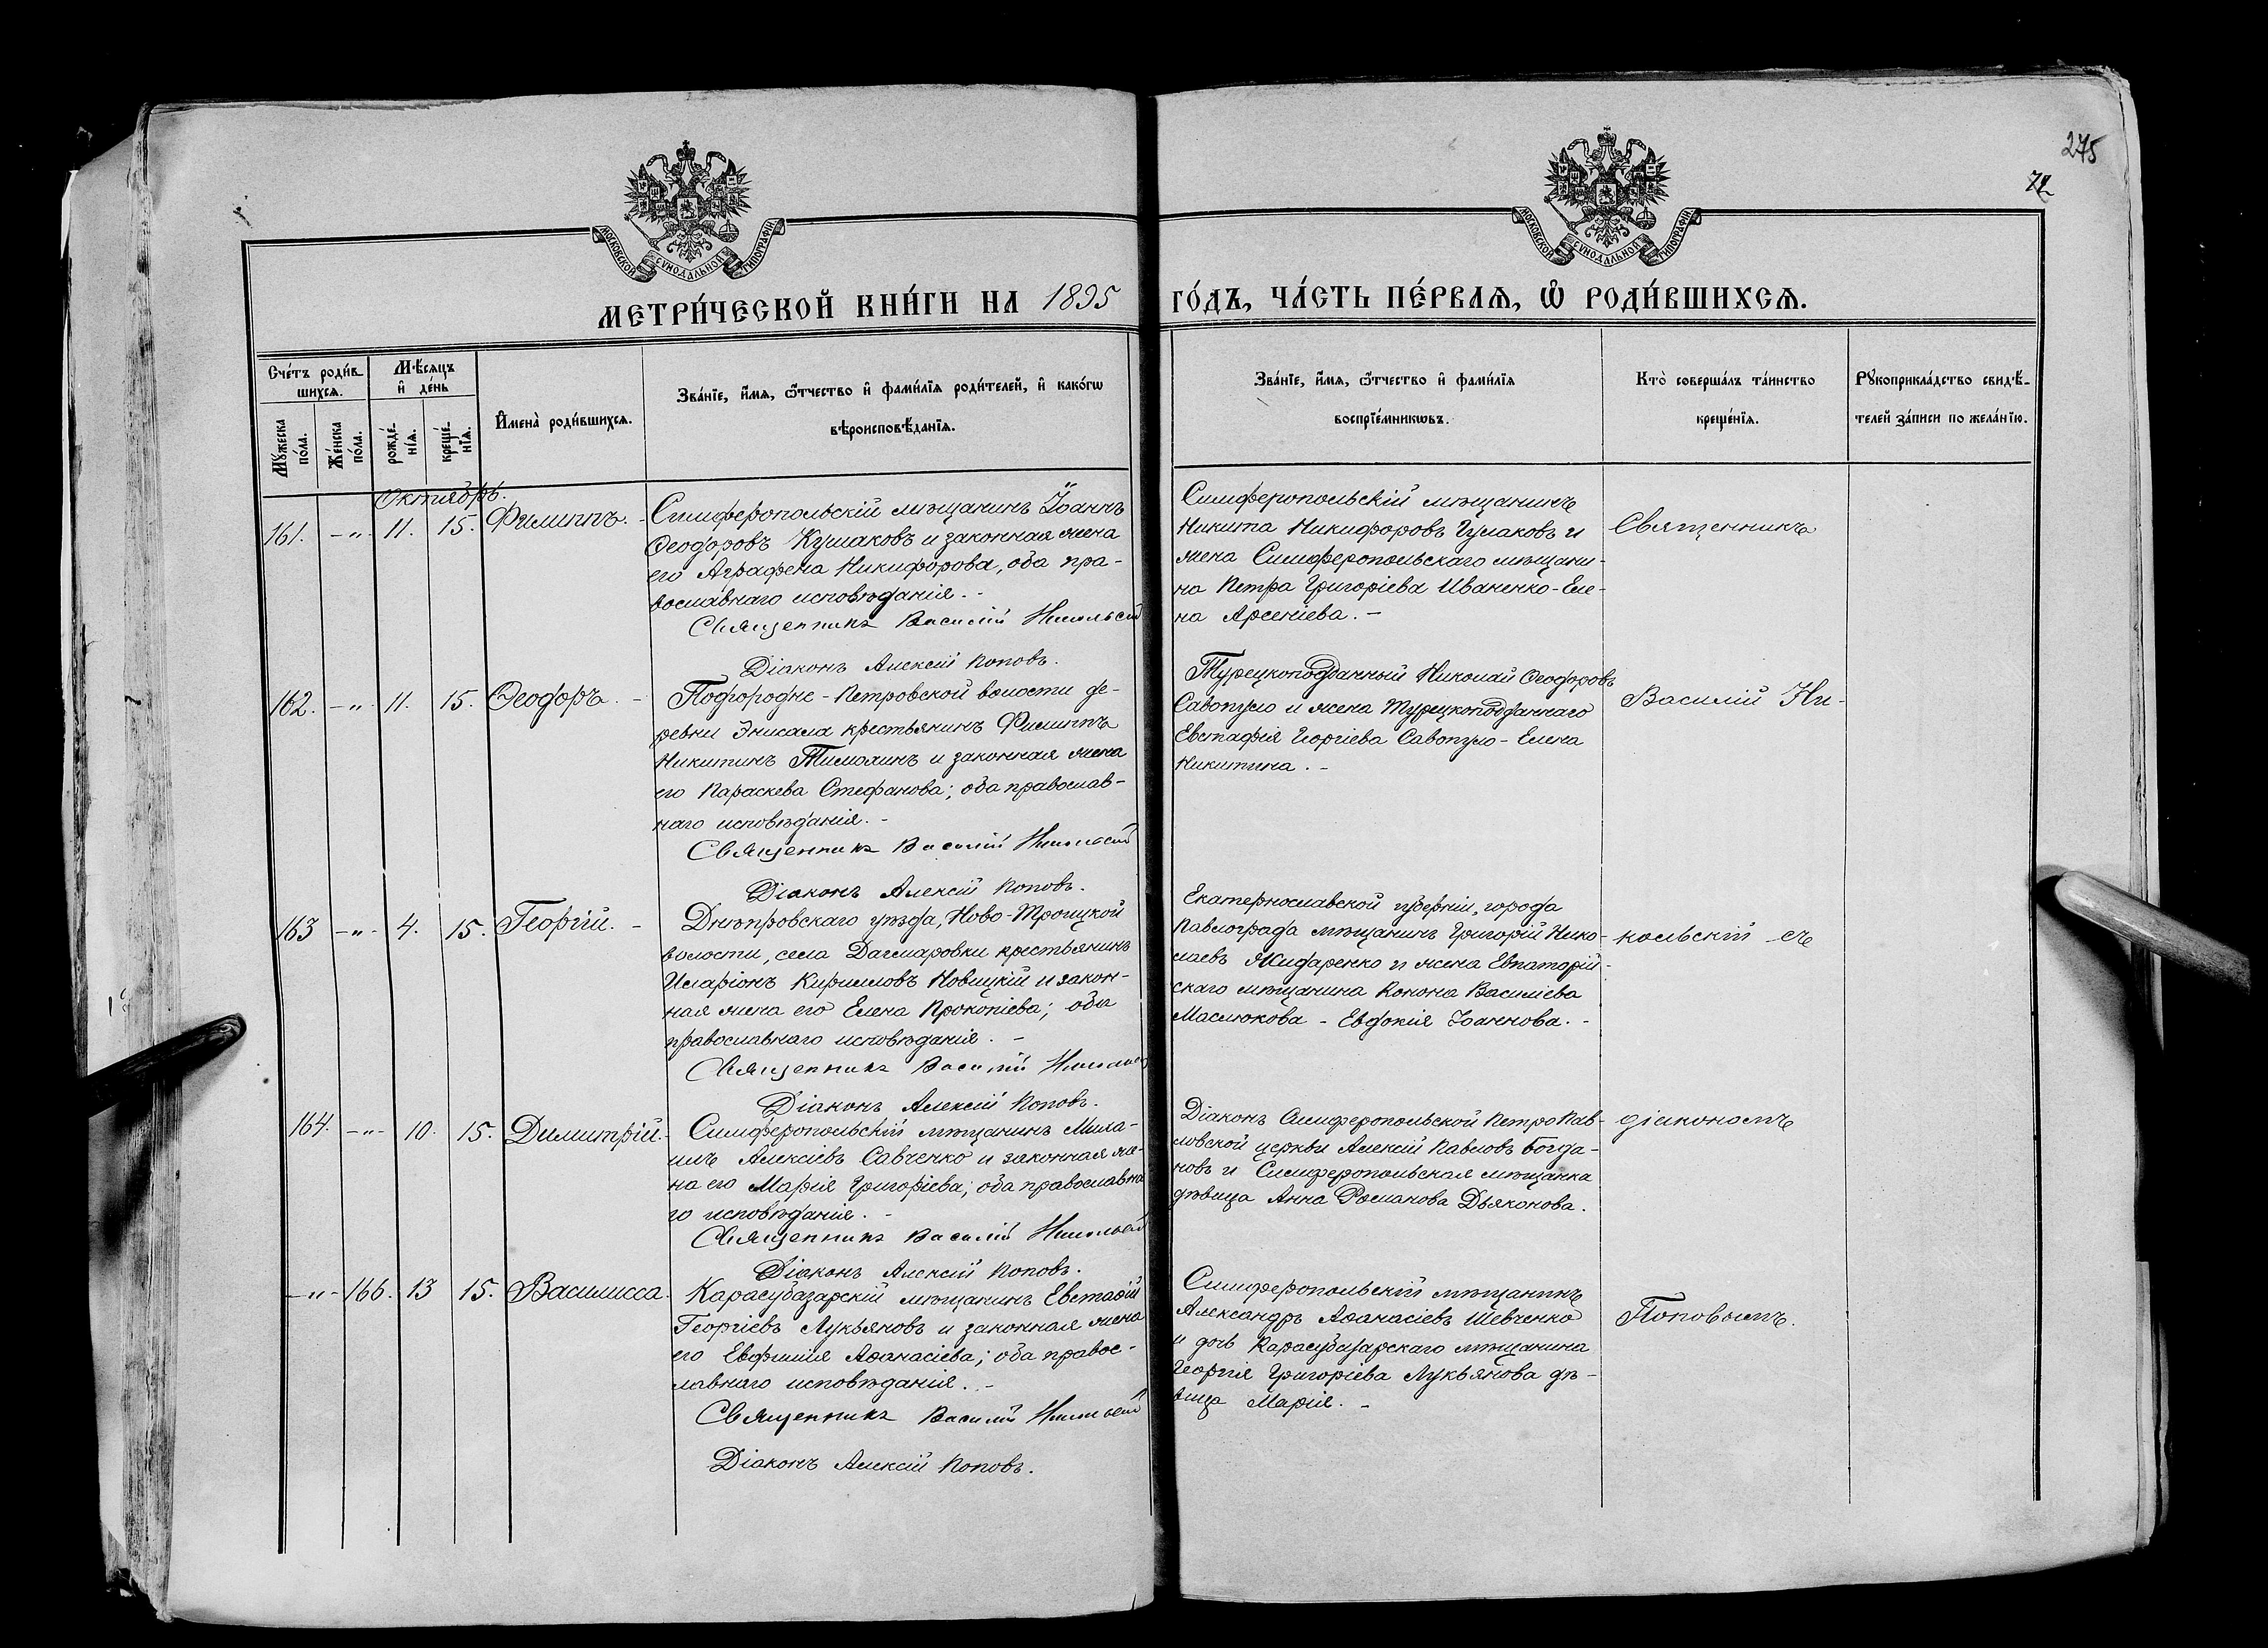 275
72
МОСКОВСКОЙ СѴНОДАЛЬНОЙ ТИПОГРАФІИ
МОСКОВСКОЙ СѴНОДАЛЬНОЙ ТИПОГРАФІИ
МЕТРИ́ЧЕСКОЙ КНИ́ГИ НА 1895 ГО́ДЪ, ЧА́СТЬ ПЕ́РВАѦ, Ѡ҆ РОДИ́ВШИХСѦ.
Сче́тъ роди́в
шихсѧ.
Мꙋ́жеска
по́ла.
Же́нска
по́ла.
Мѣ́сѧцъ
и҆ де́нь
рожде́-
нїѧ.
креще́-
нїѧ.
И҆мена̀ роди́вшихсѧ.
Зва́нїе, и҆́мѧ, ѻ҆́тчество и҆ фами́лїѧ роди́телей, и҆ како́гѡ
вѣроисповѣ́данїѧ.
Зва́нїе, и҆́мѧ, ѻ҆́тчество и҆ фами́лїѧ
воспрїе́мникѡвъ.
Кто̀ соверша́лъ та́инство
креще́нїѧ.
Рꙋкоприкла́дство свидѣ́-
телей за́писи по жела́нїю.
Октябрь.
161. -"- 11. 15. Филиппъ. -
Симферопольскій мѣщанинъ Іоаннъ
Ѳеодоровъ Кушаковъ и законная жена
его Аграфена Никифорова, оба пра-
вославнаго исповѣданія. -
Священникъ Василій Никольскій
Діаконъ Алексій Поповъ.
Симферопольскій мѣщанинъ
Никита Никифоровъ Чумаковъ и
жена Симферопольскаго мѣщани-
на Петра Григоріева Иваненко - Еле-
на Арсеніева. -
Священникъ
162. -"- 11. 15. Ѳеодоръ. -
Подгородне - Петровской волости де-
ревни Эникала крестьянинъ Филиппъ
Никитинъ Тимолинъ и законная жена
его Параскева Стефанова; оба православ-
наго исповѣданія. -
Священникъ Василій Никольскій
Діаконъ Алексій Поповъ.
Турецкоподданный Николай Ѳеодоровъ
Савопуло и жена Турецкоподданнаго
Евстафія Георгіева Савопуло - Елена
Никитина. -
Василій Ни-
163 -"- 4. 15. Георгій. -
Днѣпровскаго уѣзда, Ново-Троицкой
волости, села Дагмаровки крестьянинъ
Иларіонъ Кирилловъ Новицкій и закон-
ная жена его Елена Прокопіева; оба
православнаго исповѣданія. -
Священникъ Василій Никольскій
Діаконъ Алексій Поповъ.
Екатеринославской губерніи, города
Павлограда мѣщанинъ Григорій Нико-
лаевъ Жидаренко и жена Евпаторій-
скаго мѣщанина Конона Василіева
Маслюкова - Евдокія Іоаннова. -
кольскій съ
164. -"- 10. 15. Димитрій. -
Симферопольскій мѣщанинъ Миха-
илъ Алексіевъ Савченко и законная же-
на его Марія Григоріева; оба православна
го исповѣданія. -
Священникъ Василій Никольскій
Діаконъ Алексій Поповъ.
Діаконъ Симферопольской Петро Пав-
ловской церкви Алексій Павловъ Богда-
новъ и Симферопольская мѣщанка
дѣвица Анна Романова Дьяконова.
діакономъ
-"- 166. 13 15. Василисса.
Карасубазарскій мѣщанинъ Евстафій
Георгіевъ Лукьяновъ и законная жена
его Евфимія Аѳанасіева; оба правос-
лавнаго исповѣданія. -
Священникъ Василій Никольскій
Діаконъ Алексій Поповъ.
Симферопольскій мѣщанинъ
Александръ Аѳанасіевъ Шевченко
и дочь Карасубазарскаго мѣщанина
Георгія Григоріева Лукьянова дѣ-
вица Марія. -
Поповымъ.